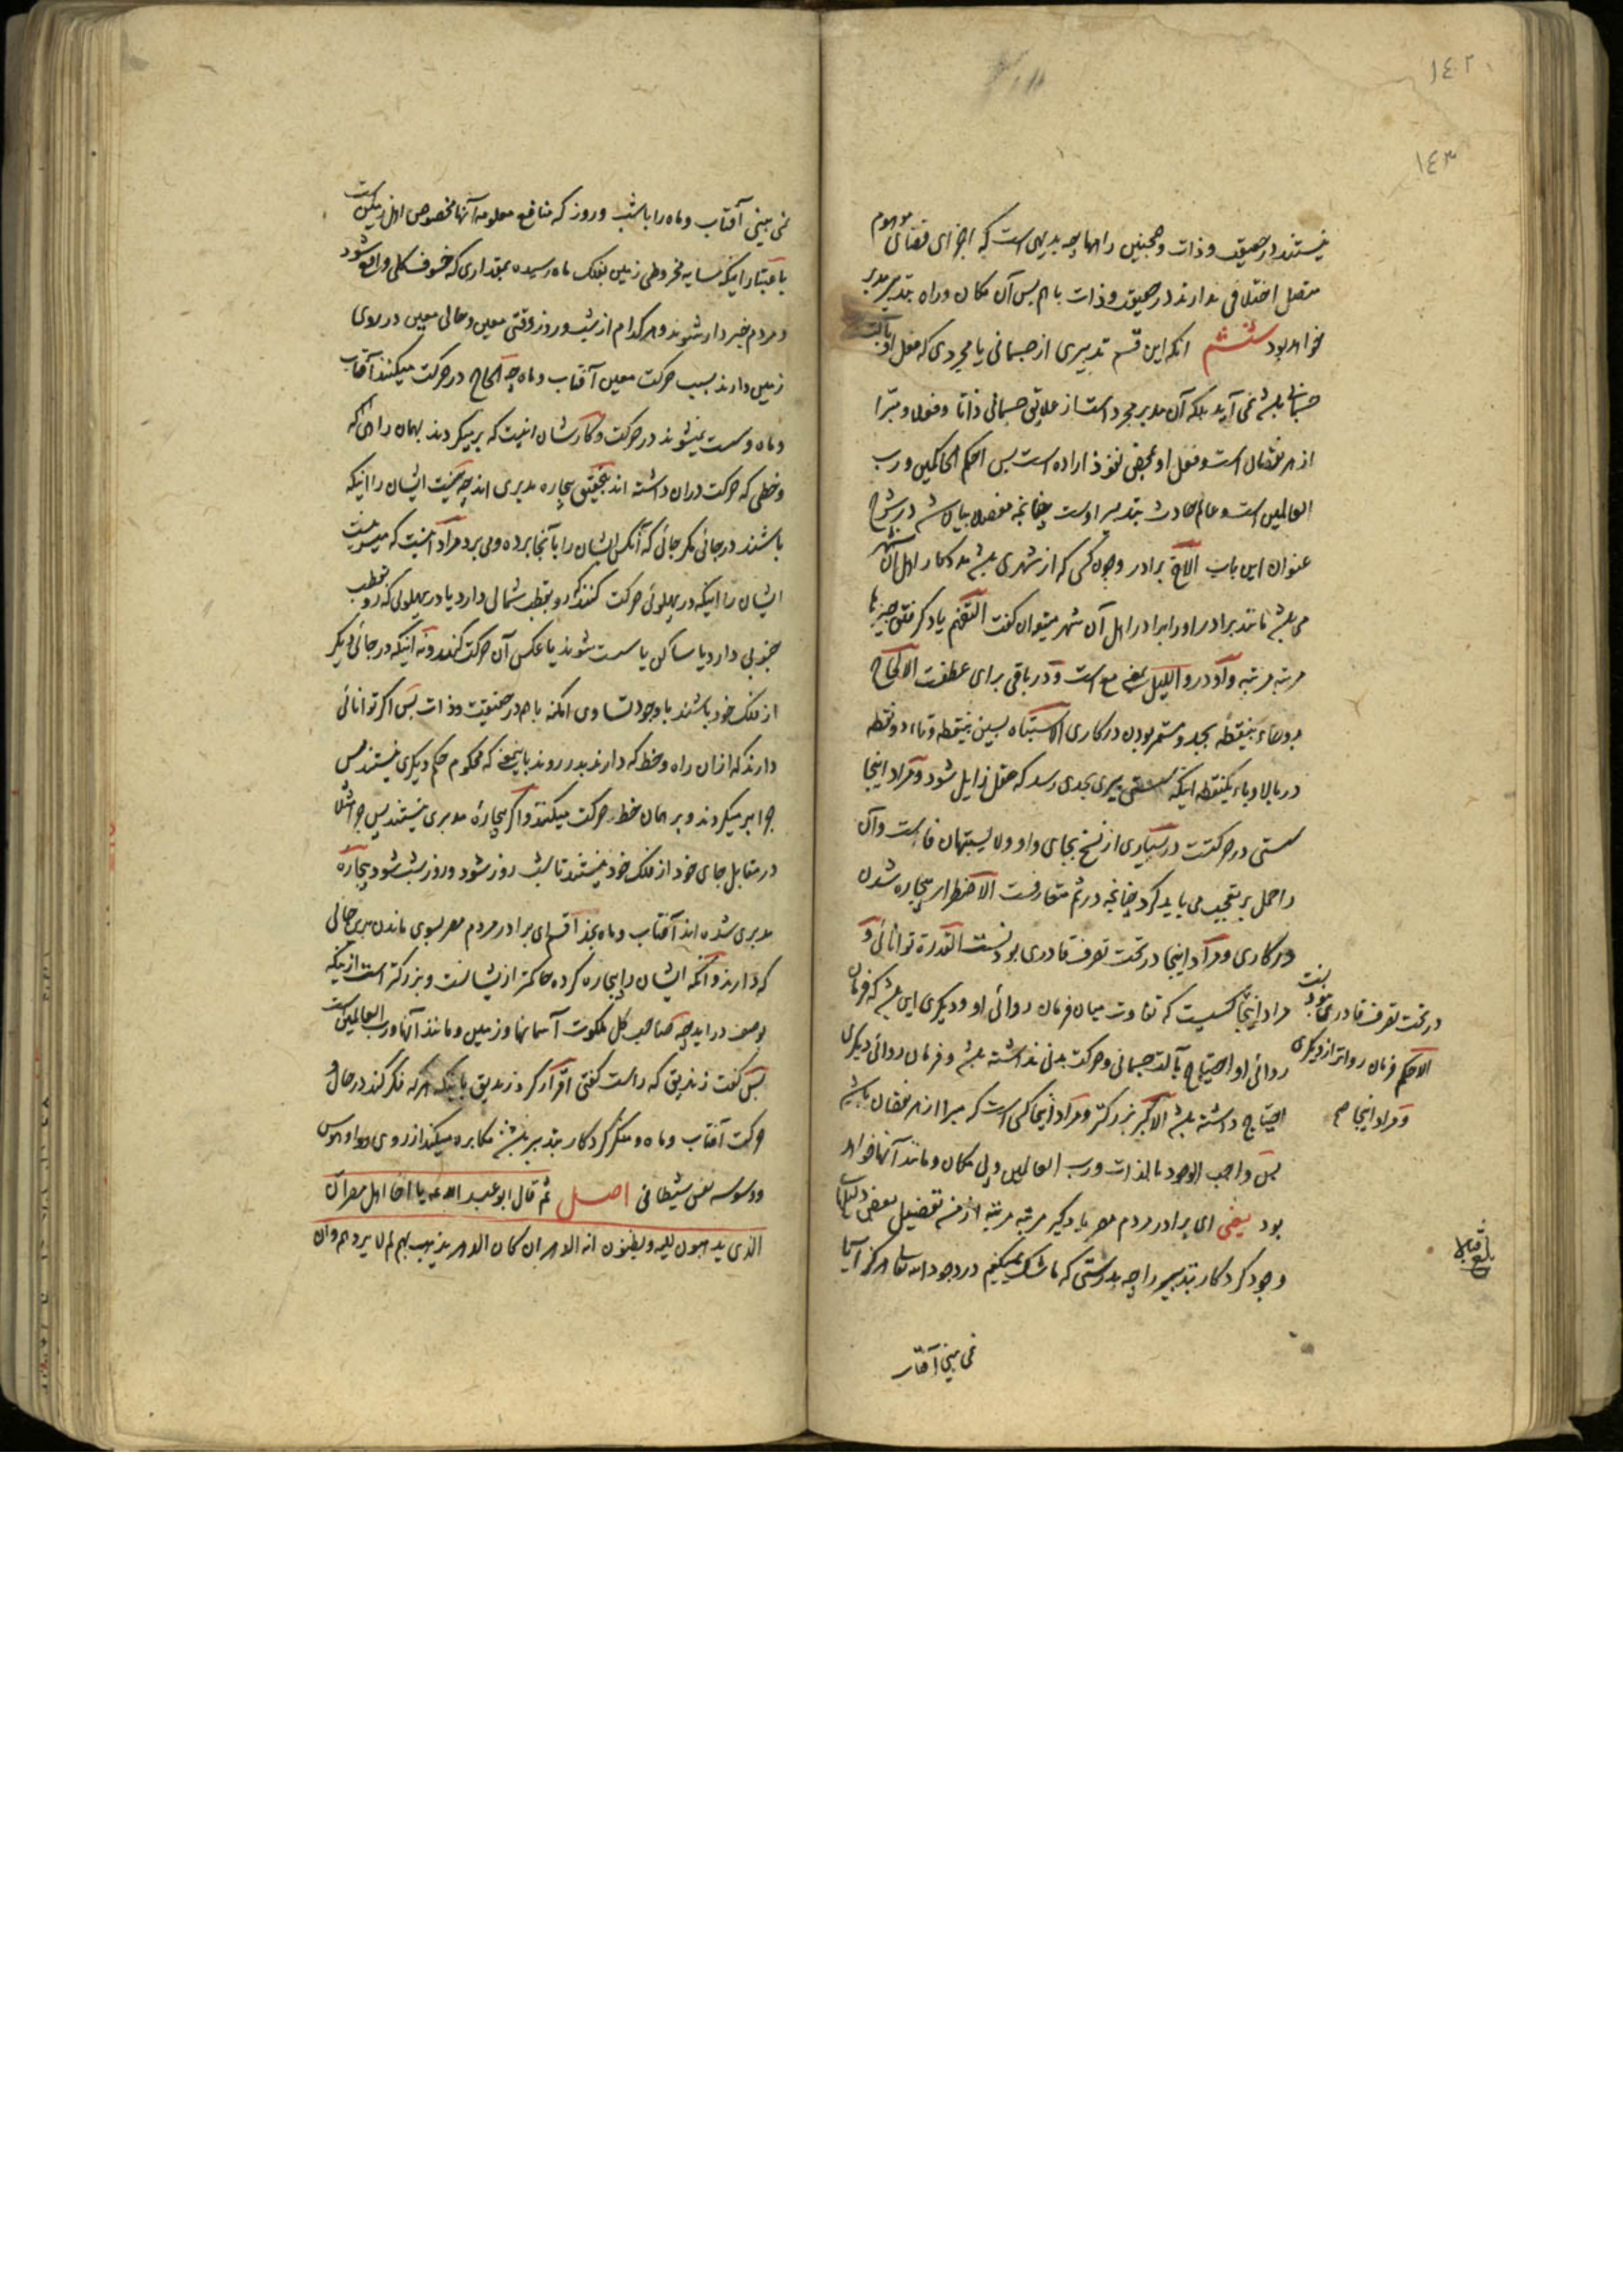 ١٤٢
١٤٣
نیستند در حقیقت و ذات و همچنین راهها چه بدیهی است که اجزای فضای موهوم
متصل اختلافی ندارند در حقیقت و ذات با هم پس آن مکان و راه بتدبیر مدبر
خواهد بود ششم آنکه این قسم تدبیری از جسمانی یا مجردی که فعل او بآلت
جسمانی باشد نمی آید بلکه آن مدبر مجرد است از علایق جسمانی ذاتا و فعلا و مبرا
از هر نقصان است و فعل او بمحض نفوذ اراده است پس احکم الحاکمین و رب
العالمین است و عالم حادث بتدبیر اوست چنانچه مفصلا بیان شد در شرح
عنوان این باب الاخ برادر و چون کسی که از شهری باشد مددکار اهل آن شهر
می باشد مانند برادر او را برادر اهل آن شهر میتوان گفت التفهم یاد گرفتن چیزها
مرتبه مرتبه واو در واللیل بمعنی مع است و در باقی برای عطفست الالجاج
بدو جیم یکنقطه بجد و مستمر بودن در کاری الاشتباه بسین بینقطه و تاء دو نقطه
در بالا و باء یکنقطه اینکه سستی پیری بحدی رسد که عقل زایل شود و مراد اینجا
سستی در حرکتست در بسیاری از نسخ بجای واو ولا یشتبهان فاست و آن
را حمل بر تعجب می باید کرد چنانچه در ثم متعارفست الاضطرار بیچاره شدن
در کاری و مراد اینجا در تحت تصرف قادری بودنست القدرة توانائی و
مراد اینجا کسیست که تفاوت میان فرمان روائی او و دیگری این باشد که فرمان
روائی او احتیاج بآلت جسمانی و حرکت بدنی نداشته باشد و فرمان روائی دیگری
احتیاج داشته باشد الاکبر بزرگتر و مراد اینجا کسی است که مبرا از هر نقصان باشد
پس واجب الوجود بالذات و رب العالمین و بی مکان و مانند آنها خواهد
بود یعنی ای برادر مردم مصر یاد گیر مرتبه مرتبه از من تفصیل بعض دلیلهای
وجود کردگار بتدبیر را چه بدرستی که ما شک نمیکنیم در وجود الله تعالی هرگز آیا
نمی بینی آفتاب
در تحت تصرف قادری نبودنست
الاحکم فرمان رواتر از دیگری
و مراد اینجا صح
بلغ قبالا
نمی بینی آفتاب و ماه را با شب و روز که منافع معلومه آنها مخصوص اهل زمین است
باعتبار اینکه سایه مخروطی زمین بفلک ماه رسیده بمقداری که خسوف کلی واقع شود
و مردم خبردار شوند و هر کدام از شب و روز وقتی معین و حالی معین در روی
زمین دارند بسبب حرکت معین آفتاب و ماه چه الحاح در حرکت میکنند آفتاب
و ماه و سست نمیشوند در حرکت و کارشان اینست که برمیگردند بهمان راهی که
و خطی که حرکت در آن داشته اند بتحقیق بیچاره مدبری اند چه نیست ایشان را اینکه
باشند در جائی مگر جائی که آنکس ایشان را بآنجا برده و می برد مراد آنست که میسر نیست
ایشان را اینکه در پهلوئی حرکت کنند که رو بقطب شمالی دارد یا در پهلوئی که رو بقطب
جنوبی دارد یا ساکن یا سست شوند یا عکس آن حرکت کنند و نه اینکه در جائی دیگر
از فلک خود باشند با وجود تساوی امکنه با هم در حقیقت و ذات پس اگر توانائی
دارند که از آن راه و خط که دارند بدر روند باین معنی که محکوم حکم دیگری نیستند پس
چرا برمیگردند و بر همان خط حرکت میکنند و اگر بیچاره مدبری نیستند پس چرا مثلا
در مقابل جای خود از فلک خود نیستند تا شب روز شود و روز شب شود بیچاره
مدبری شده اند آفتاب و ماه بخدا قسم ای برادر مردم مصر بسوی ماندن بر این حالی
که دارند و آنکه ایشان را بیچاره کرده حاکمتر از ایشانست و بزرگتر است از اینکه
بوصف در آید چه صاحب کل ملکوت آسمانها و زمین و مانند آنها و رب العالمین است
پس گفت زندیق که راست گفتی اقرار کرد زندیق باینکه هر که فکر کند در حال
حرکت آفتاب و ماه و منکر کردگار بتدبیر باشد مکابره میکند از روی هوا و هوس
و وسوسه نفس شیطانی اصل ثم قال ابو عبد الله ع یا اخا اهل مصر ان
الذی یذهبون الیه و یظنون انه الدهر ان کان الدهر یذهب بهم لم لا یردهم و ان